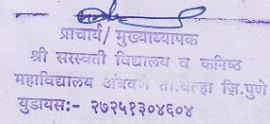 प्राचार्य/ मुख्याध्यापक
श्री सरस्वती विद्यालय व कनिष्ठ
महाविद्यालय ता.वेल्हा जि.पुणे
युडायसः- २७२५१३०४६०४